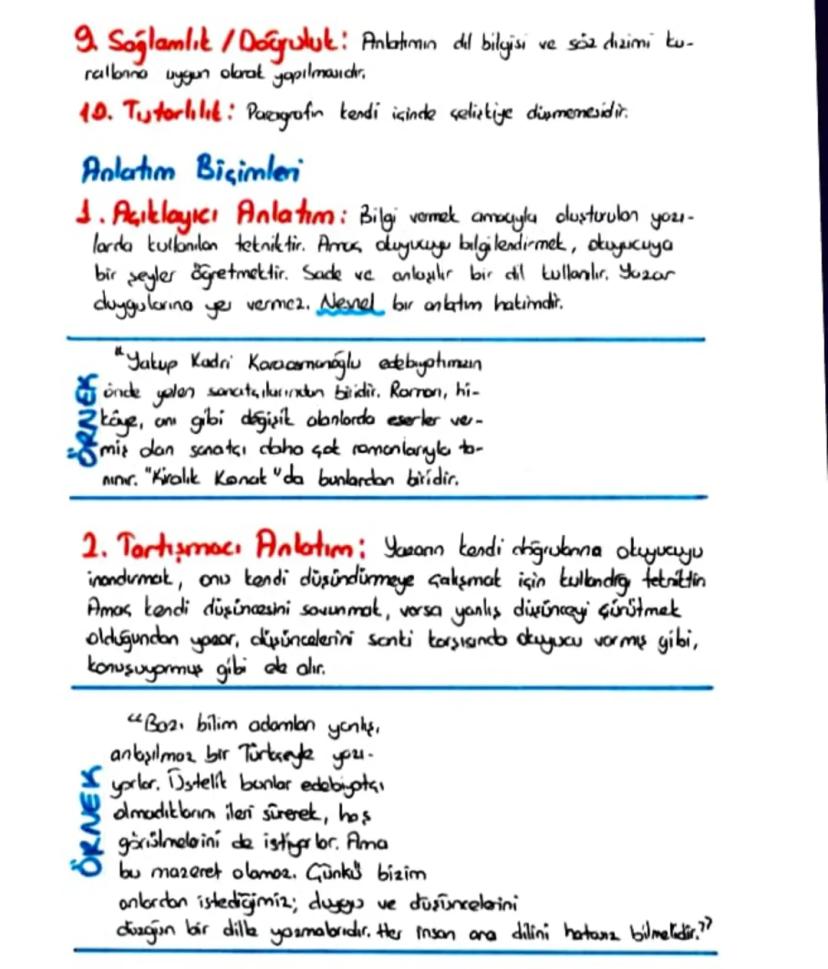 9. Sağlamlık / Doğruluk: Anlatımın dil bilgisi ve söz dizimi ku-
rallarına uygun olarak yapılmasıdır.
10. Tutarlılık: Paragrafın kendi içinde çelişkiye düşmemesidir.
Anlatım Biçimleri
1. Açıklayıcı Anlatım: Bilgi vermek amacıyla oluşturulan yazı-
larda kullanılan tekniktir. Amaç okuyucuyu bilgilendirmek, okuyucuya
bir şeyler öğretmektir. Sade ve anlaşılır bir dil kullanılır. Yazar
duygularına yer vermez. Nesnel bir anlatım hakimdir.
ÖRNEK
"Yakup Kadri Karaosmanoğlu edebiyatımızın
önde gelen sanatçılarından biridir. Roman, hi-
kâye, anı gibi değişik alanlarda eserler ver-
miş olan sanatçı daha çok romanlarıyla ta-
nınır. "Kiralık Konak"da bunlardan biridir.
2. Tartışmacı Anlatım: Yazarın kendi doğrularına okuyucuyu
inandırmak, onu kendi düşündürmeye çalışmak için kullandığı tekniktir.
Amaç kendi düşüncesini savunmak, varsa yanlış düşünceyi çürütmek
olduğundan yazar, düşüncelerini sanki karşısında okuyucu varmış gibi,
konuşuyormuş gibi ele alır.
ÖRNEK
"Bazı bilim adamları yanlış,
anlaşılmaz bir Türkçeyle yazı-
yorlar. Üstelik bunlar edebiyatçı
olmadıklarını ileri sürerek, hoş
görülmelerini de istiyorlar. Ama
bu mazeret olamaz. Çünkü bizim
onlardan istediğimiz; duygu ve düşüncelerini
düzgün bir dille yazmalarıdır. Her insan ana dilini hatasız bilmelidir."